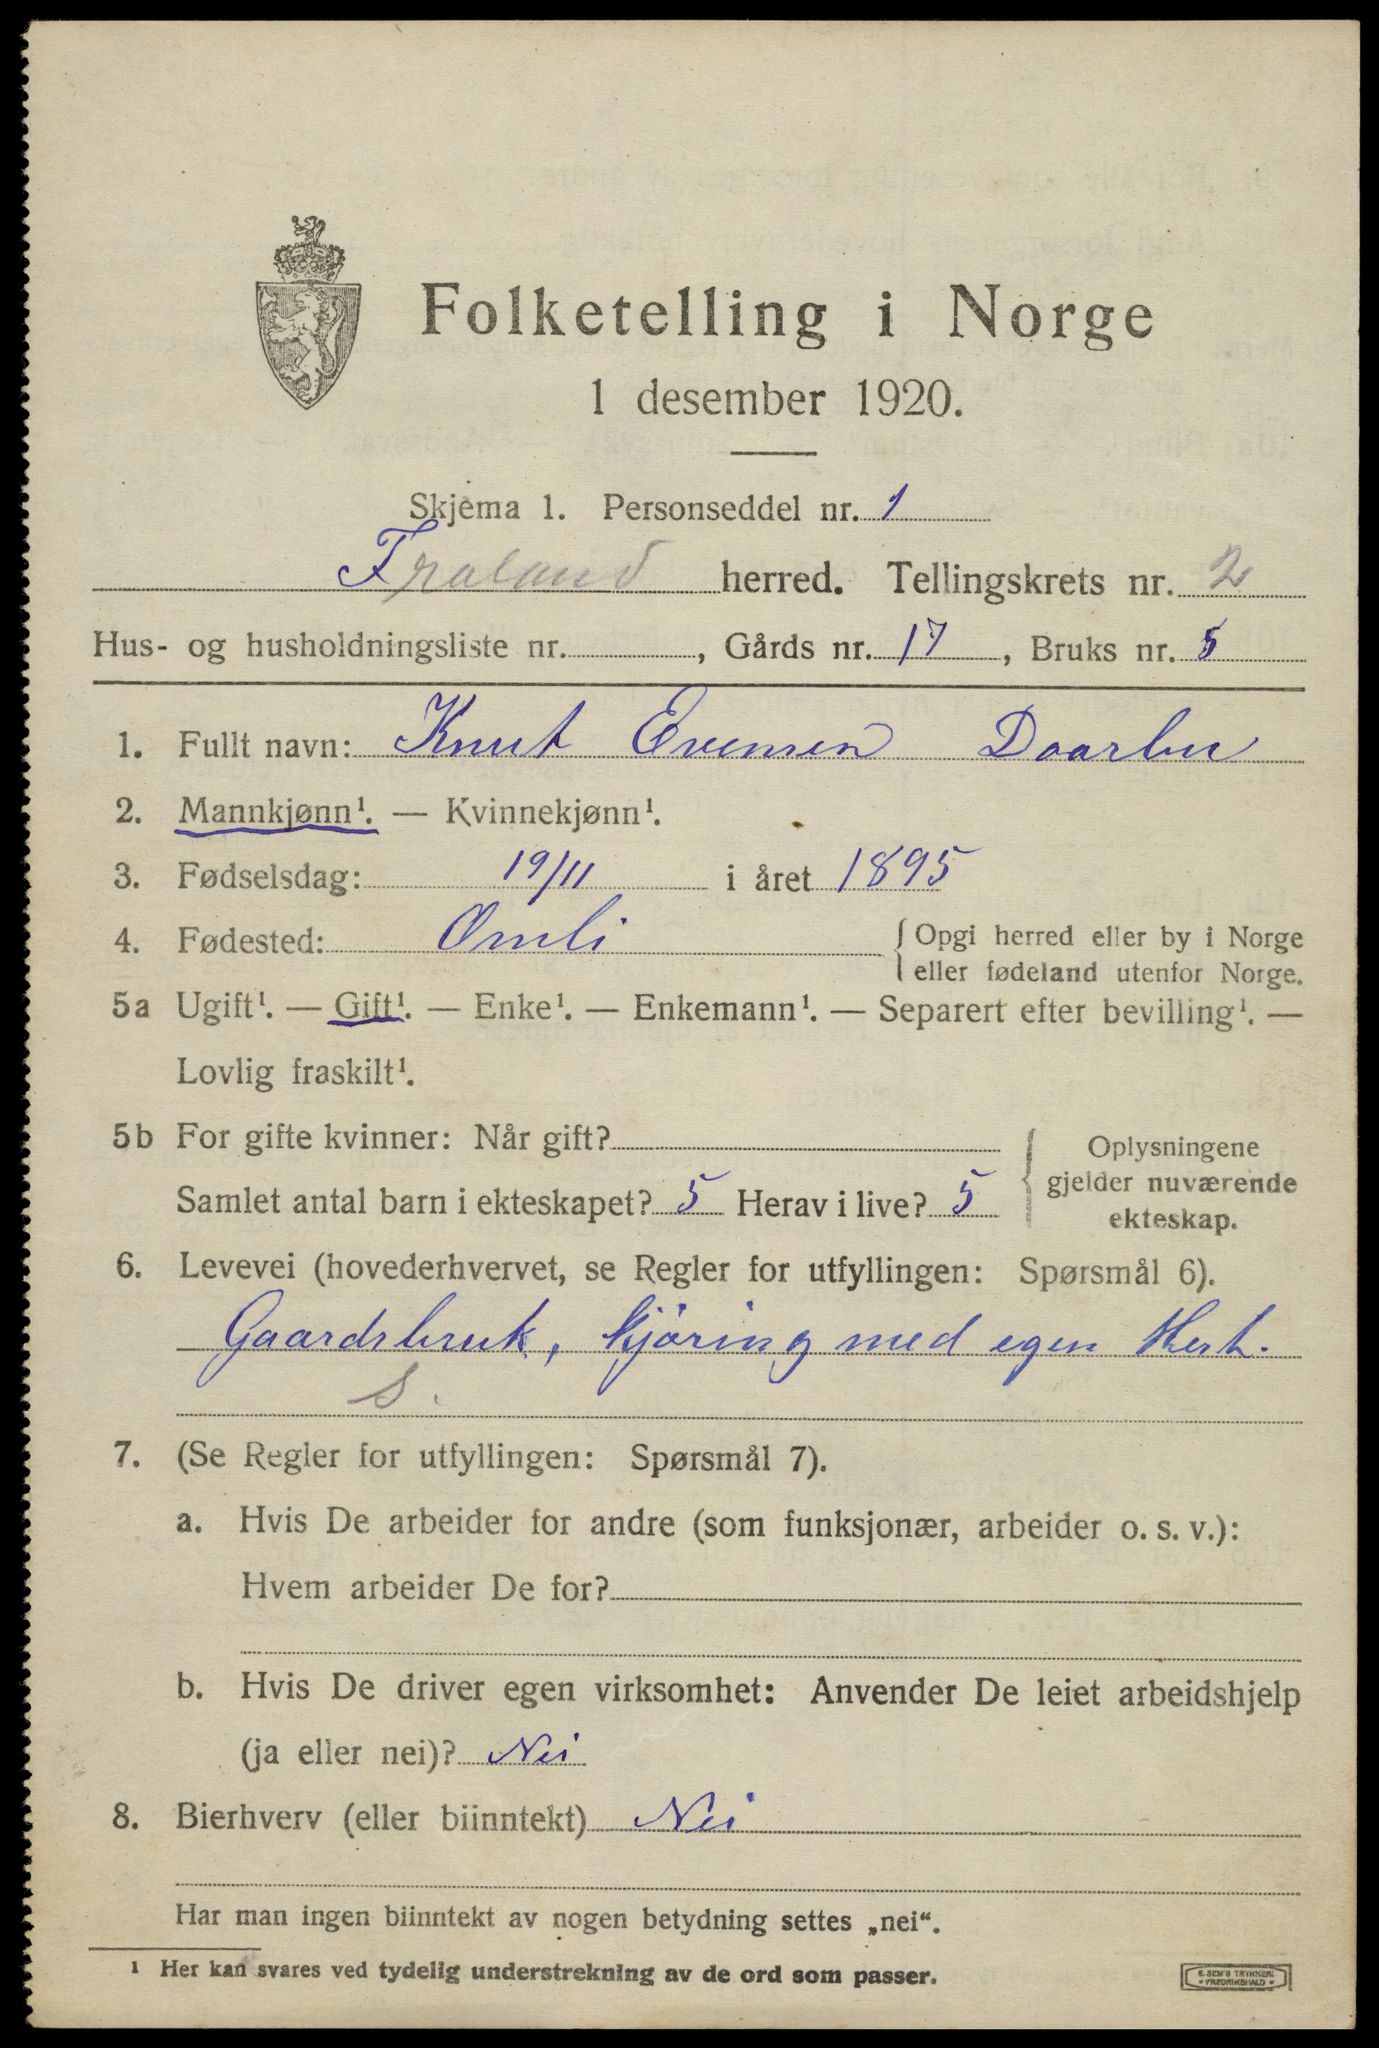 Folketelling i Norge
1 desember 1920.
Skjema 1. Personseddel nr. 1
Froland herred. Tellingskrets nr. 2
Hus- og husholdningsliste nr. , Gårds nr. 17, Bruks nr. 5
1. Fullt navn: Knut Evensen Daarbu
2. Mannkjønn¹. — Kvinnekjønn¹.
3. Fødselsdag: 19/11 i året 1895
4. Fødested: Omli { Opgi herred eller by i Norge
eller fødeland utenfor Norge.
5a Ugift¹. — Gift¹. — Enke¹. — Enkemann¹. — Separert efter bevilling¹. —
Lovlig fraskilt¹.
5b For gifte kvinner: Når gift?
Samlet antal barn i ekteskapet? 5 Herav i live? 5
{ Oplysningene
gjelder nuværende
ekteskap.
6. Levevei (hovederhvervet, se Regler for utfyllingen: Spørsmål 6).
Gaardsbruk, kjøring med egen Hest.
S.
7. (Se Regler for utfyllingen: Spørsmål 7).
a. Hvis De arbeider for andre (som funksjonær, arbeider o. s. v.):
Hvem arbeider De for?
b. Hvis De driver egen virksomhet: Anvender De leiet arbeidshjelp
(ja eller nei)? Nei
8. Bierhverv (eller biinntekt) Nei
Har man ingen biinntekt av nogen betydning settes „nei“.
¹ Her kan svares ved tydelig understrekning av de ord som passer.
E. SEM'S TRYKKERI
• FREDRIKSHALD •